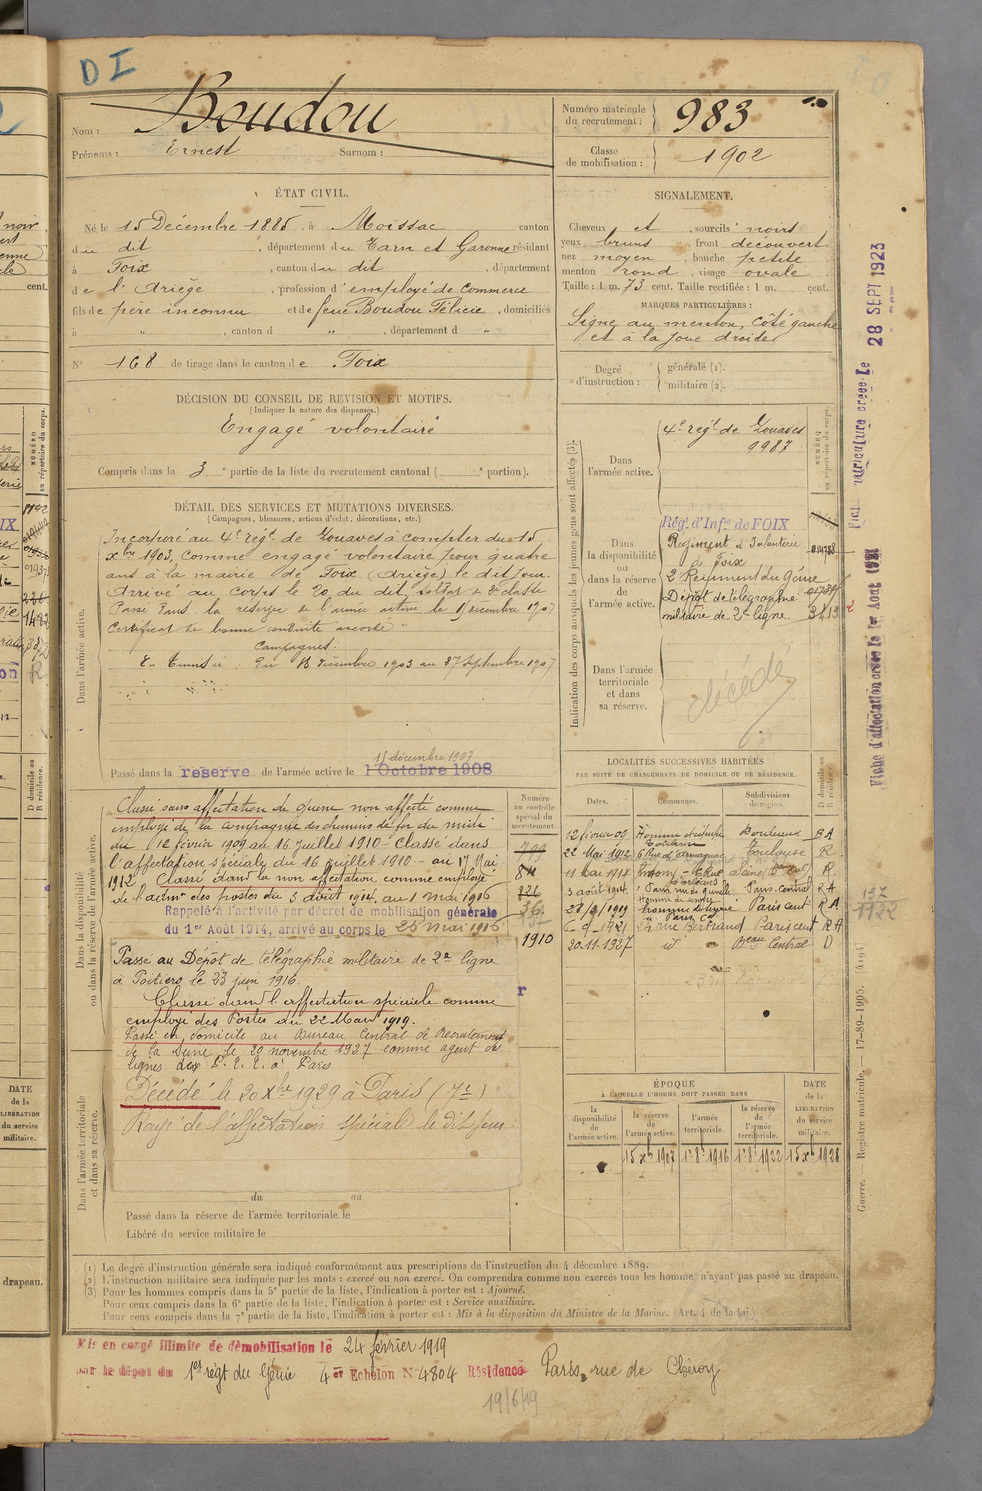 DI
Nom : Boudou
Prénoms : Ernest Surnom :
Numéro matricule du recrutement : 983
Classe de mobilisation : 1902
ÉTAT CIVIL.
Né le 15 Décembre 1885, à Moissac canton
du dit, département du Tarn et Garonne résidant
à Foix, canton du dit, département
de l'Ariège, profession d'employé de Commerce
fils de père inconnu et de feue Boudou Félicie, domiciliés
à " , canton d " , département d "
N° 168 de tirage dans le canton de Foix
SIGNALEMENT.
Cheveux et, sourcils noirs
yeux bruns, front découvert
nez moyen, bouche petite
menton rond, visage ovale
Taille : 1 m. 73 cent. Taille rectifiée : 1 m. cent.
MARQUES PARTICULIÈRES :
Signe au menton, côté gauche
et à la joue droite
Degré d'instruction : générale (1).
militaire (2).
DÉCISION DU CONSEIL DE REVISION ET MOTIFS.
(Indiquer la nature des dispenses.)
Engagé volontaire
Compris dans la 3e partie de la liste du recrutement cantonal ( e portion).
DÉTAIL DES SERVICES ET MUTATIONS DIVERSES.
(Campagnes, blessures, actions d'éclat, décorations, etc.)
Dans l'armée active.
Incorporé au 4e régt de Zouaves à compter du 15
Xbre 1903, comme engagé volontaire pour quatre
ans à la mairie de Foix (Ariège) le dit jour.
Arrivé au corps le 20 du dit, soldat de 2e classe
Passé dans la réserve de l'armée active le 15 décembre 1907
Certificat de bonne conduite accordé
Campagnes :
En Tunisie : Du 18 décembre 1903 au 27 septembre 1907
15 décembre 1907
Passé dans la reserve de l'armée active le 1 Octobre 1908
Indication des corps auxquels les jeunes gens sont affectés (3).
NUMÉRO au répertoire du corps.
Dans l'armée active.
4e régt de Zouaves
9987
Dans la disponibilité ou dans la réserve de l'armée active.
Régt. d'Infie de FOIX
Régiment d'Infanterie
de Foix
2e Régiment du Génie
Dépôt de télégraphie
militaire de 2e ligne. 3413
Dans l'armée territoriale et dans sa réserve.
décédé
Dans la disponibilité ou dans la réserve de l'armée active.
Numéro au contrôle spécial du recrutement.
Classé sans affectation de guerre non affecté comme
employé de la compagnie des chemins de fer du midi
du 12 février 1909 au 16 juillet 1910 - Classé dans
l'affectation spéciale du 16 juillet 1910 - au 17 Mai
1912 Classé dans la non affectation comme employé
de l'admon des postes du 3 août 1914, au 1 mai 1916
Rappelé à l'activité par décret de mobilisation générale
du 1er Août 1914, arrivé au corps le 25 mai 1916
1910
Passé au Dépôt de télégraphie militaire de 2e ligne
à Poitiers le 23 juin 1916
Classé dans l'affectation spéciale comme
employé des Postes du 22 Mars 1919.
Passé en domicile au Bureau Central de Recrutement
de la Seine le 20 novembre 1927 comme agent des
lignes des P.T.T. à Paris
Décédé le 20 Xbre 1929 à Paris (7e)
Rayé de l'affectation spéciale le dit jour
Dans l'armée territoriale et dans sa réserve.
du au
Passé dans la réserve de l'armée territoriale le
Libéré du service militaire le
LOCALITÉS SUCCESSIVES HABITÉES
PAR SUITE DE CHANGEMENTS DE DOMICILE OU DE RÉSIDENCE.
Dates. Communes. Subdivisions de région. D domicile ou R résidence.
12 février 09 Bordeaux RA
22 Mai 1912 Toulouse R
11 mai 1914 Antony R
3 août 1914 Paris Central RA
27/3/1919 Paris Cent RA
6-9-1921 24 rue Bertrand Paris cent RA
20.11.1927 id Beau Central D
137
1722
ÉPOQUE
À LAQUELLE L'HOMME DOIT PASSER DANS
la disponibilité de l'armée active.
la réserve de l'armée active.
l'armée territoriale.
la réserve de l'armée territoriale.
DATE de la LIBÉRATION du service militaire.
15 Xbre 1907 1er 8bre 1916 1er 8bre 1922 15 Xbre 1928
(1) Le degré d'instruction générale sera indiqué conformément aux prescriptions de l'instruction du 4 décembre 1889.
(2) L'instruction militaire sera indiquée par les mots : exercé ou non exercé. On comprendra comme non exercés tous les hommes n'ayant pas passé au drapeau.
(3) Pour les hommes compris dans la 5e partie de la liste, l'indication à porter est : Ajourné.
Pour ceux compris dans la 6e partie de la liste, l'indication à porter est : Service auxiliaire.
Pour ceux compris dans la 7e partie de la liste, l'indication à porter est : Mis à la disposition du Ministre de la Marine. (Art. 4 de la loi.)
Mis en congé illimité de démobilisation le 24 février 1919
par le dépôt du 1er régt du Génie 4er Echelon N° 4804 Résidence Paris, rue de Chéroy
19/6/19
28 SEPT 1923
Fiche d'affectation créée le 1er Août 1921
Guerre. — Registre matricule. — 17-89-1905. [4194]
DATE de la LIBÉRATION du service militaire.
drapeau.